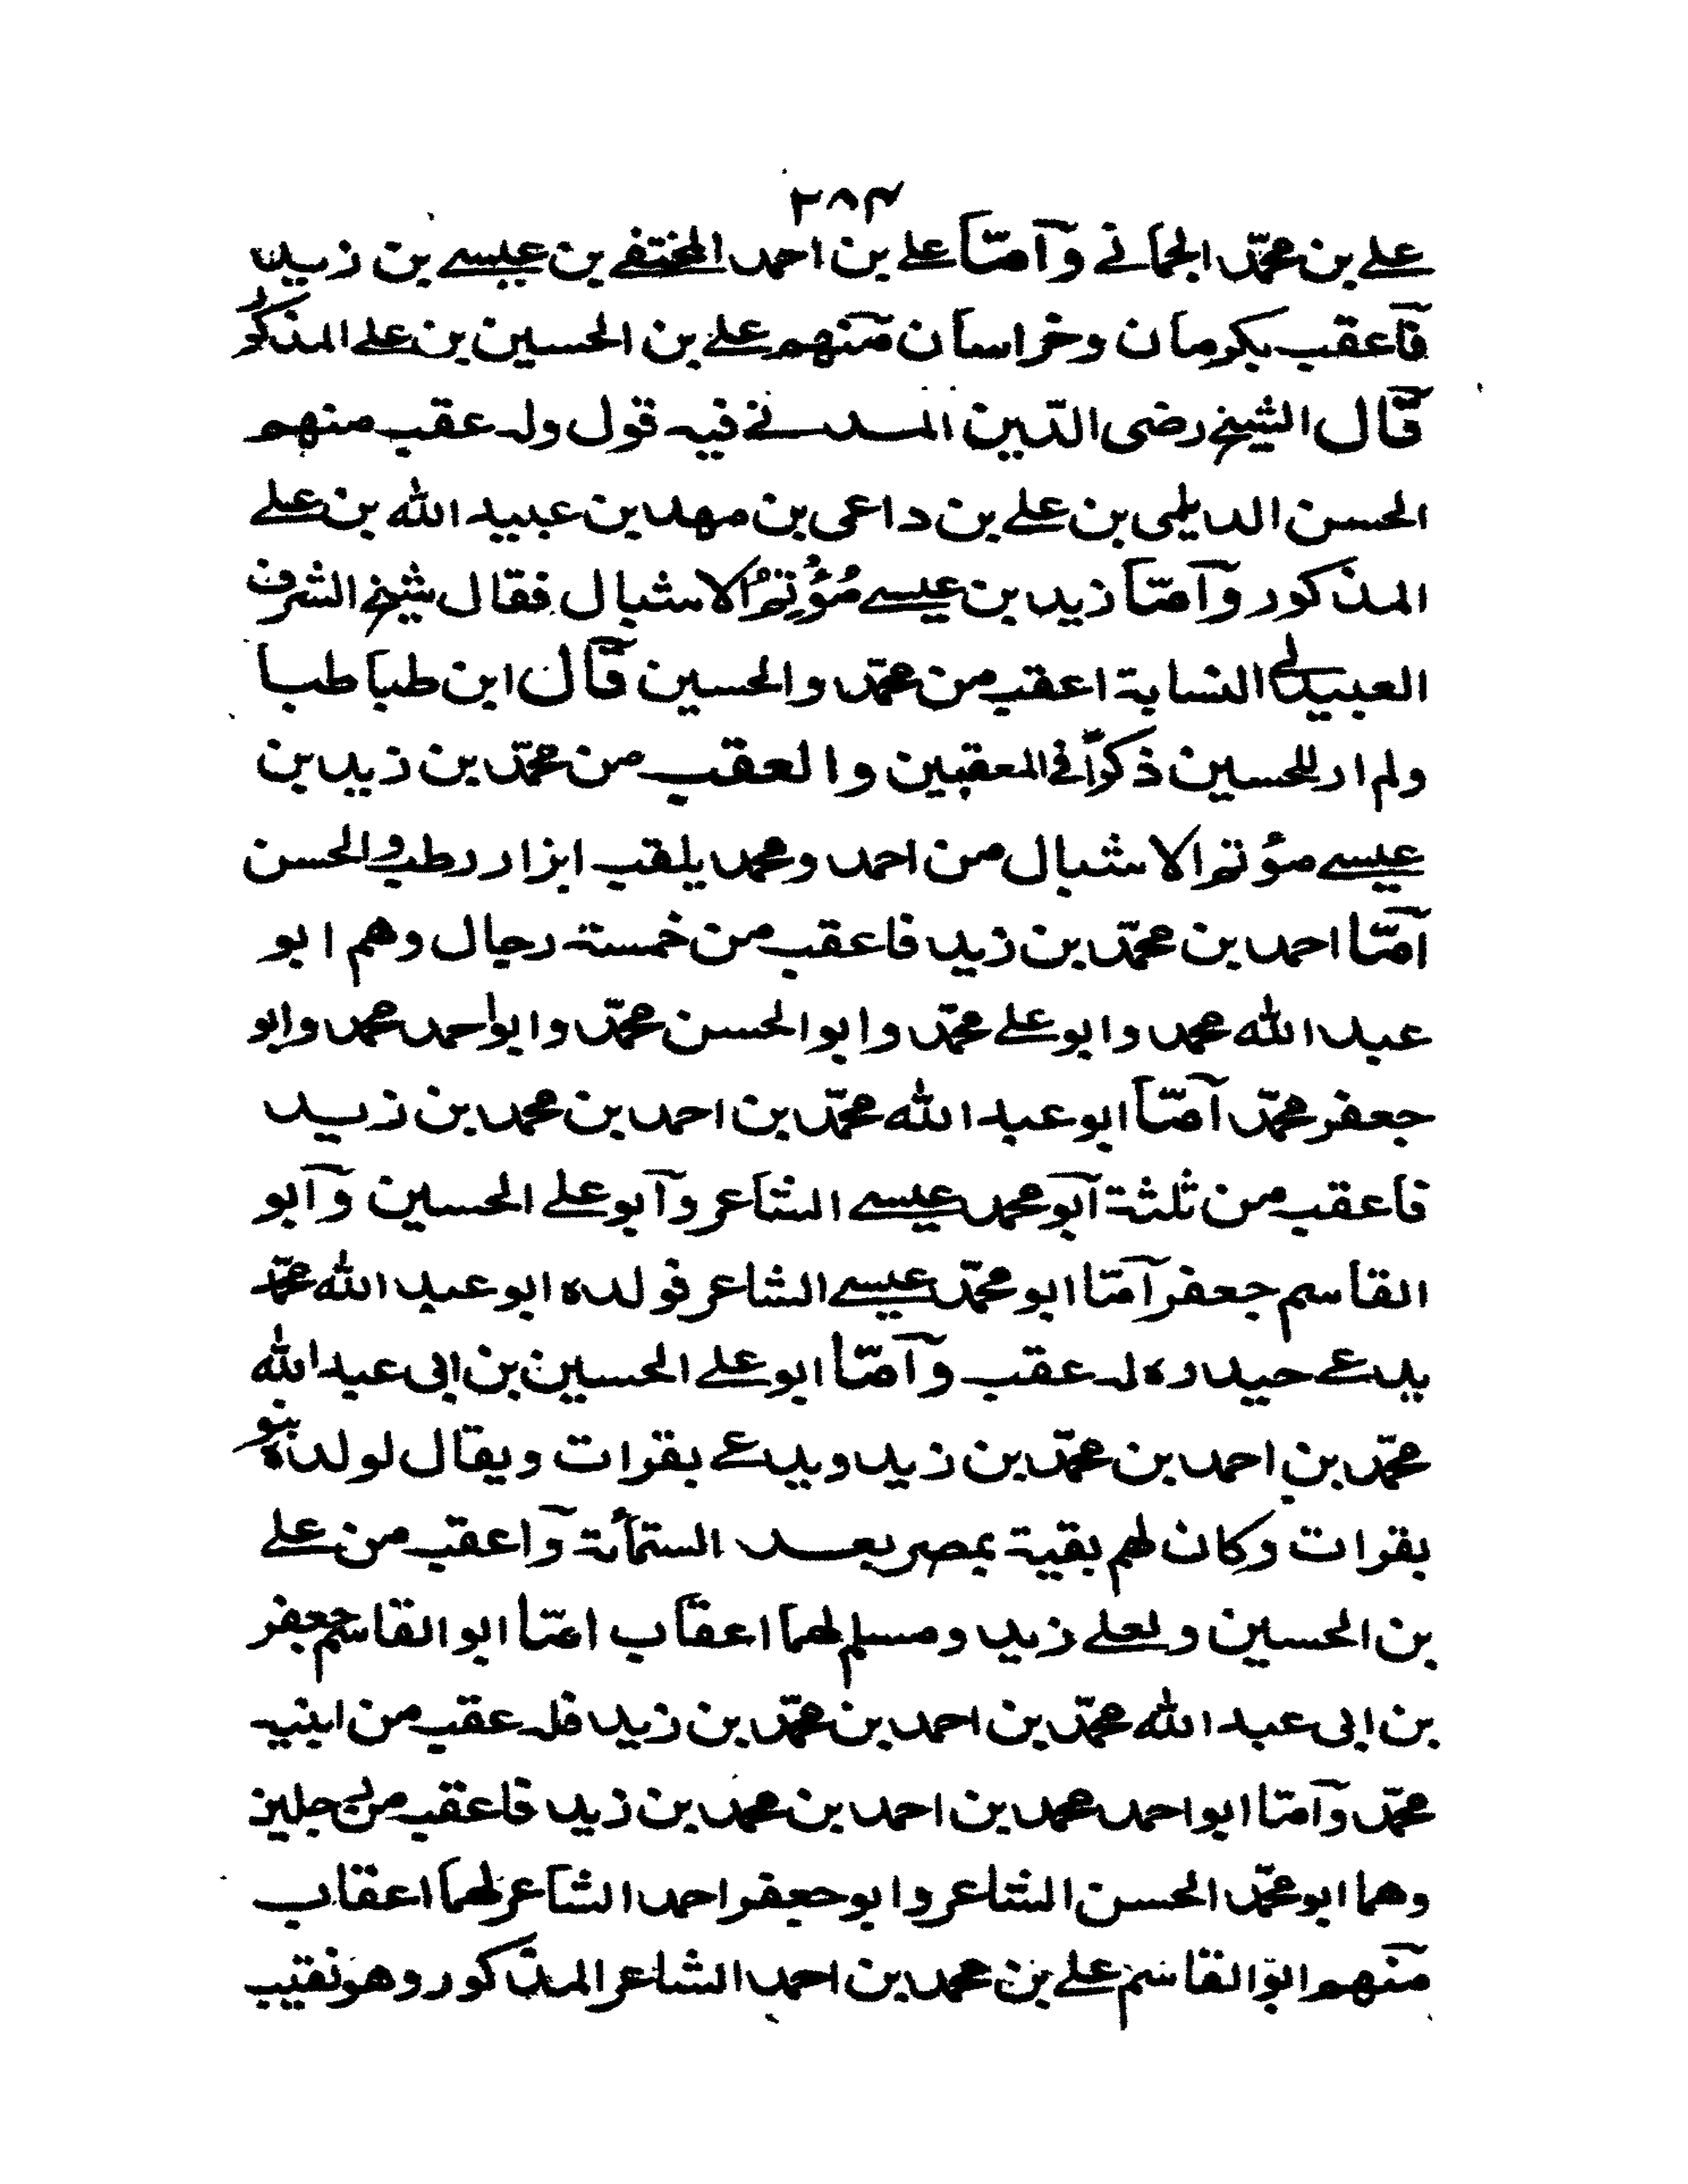 ٢٨٤
علے بن محمّد الجمانے وآمّا علے بن احمد المختفے بن عيسے بن زيد
فاعقب بكرمان وخراسان منهم علے بن الحسين بن علے المذكور
قال الشيخ رضى الدّين المدنے فيه قول وله عقب منهم
الحسن الديلمى بن علے بن داعى بن مهد بن عبيد الله بن علے
المذكور وآمّا زيد بن عيسے مُؤتمُ الاشبال فقال شيخ الشرف
العبيدلے النسابة اعقب من محمّد والحسين قال ابن طباطبا
ولم ار للحسين ذكرًا فى المعقبين والعقب من محمّد بن زيد بن
عيسے مؤتم الاشبال من احمد ومحمد يلقب ابزار رطب والحسن
آمّا احمد بن محمّد بن زيد فاعقب من خمسة رجال وهم ابو
عبد الله محمد وابو علے محمّد وابو الحسن محمّد وابو احمد محمد وابو
جعفر محمّد آمّا ابو عبد الله محمّد بن احمد بن محمد بن زيد
فاعقب من ثلثة آبو محمد عيسے الشاعر وآبو علے الحسين وآبو
القاسم جعفر آمّا ابو محمّد عيسے الشاعر فولده ابو عبد الله محمّد
يدعے حيدره له عقب وآمّا ابو علے الحسين بن ابى عبد الله
محمّد بن احمد بن محمّد بن زيد ويدعے بقرات ويقال لولده بنو
بقرات وكان لهم بقية بمصر بعد الستمأئة وآعقب من علے
بن الحسين ولعلے زيد ومسلم لهما اعقاب امّا ابو القاسم جعفر
بن ابى عبد الله محمّد بن احمد بن محمّد بن زيد فله عقب من ابنيه
محمّد وآمّا ابو احمد محمد بن احمد بن محمد بن زيد فاعقب من رجلين
وهما ابو محمّد الحسن الشاعر وابو جعفر احمد الشاعر لهما اعقاب
منهم ابو القاسم علے بن محمد بن احمد الشاعر المذكور وهو نقيب